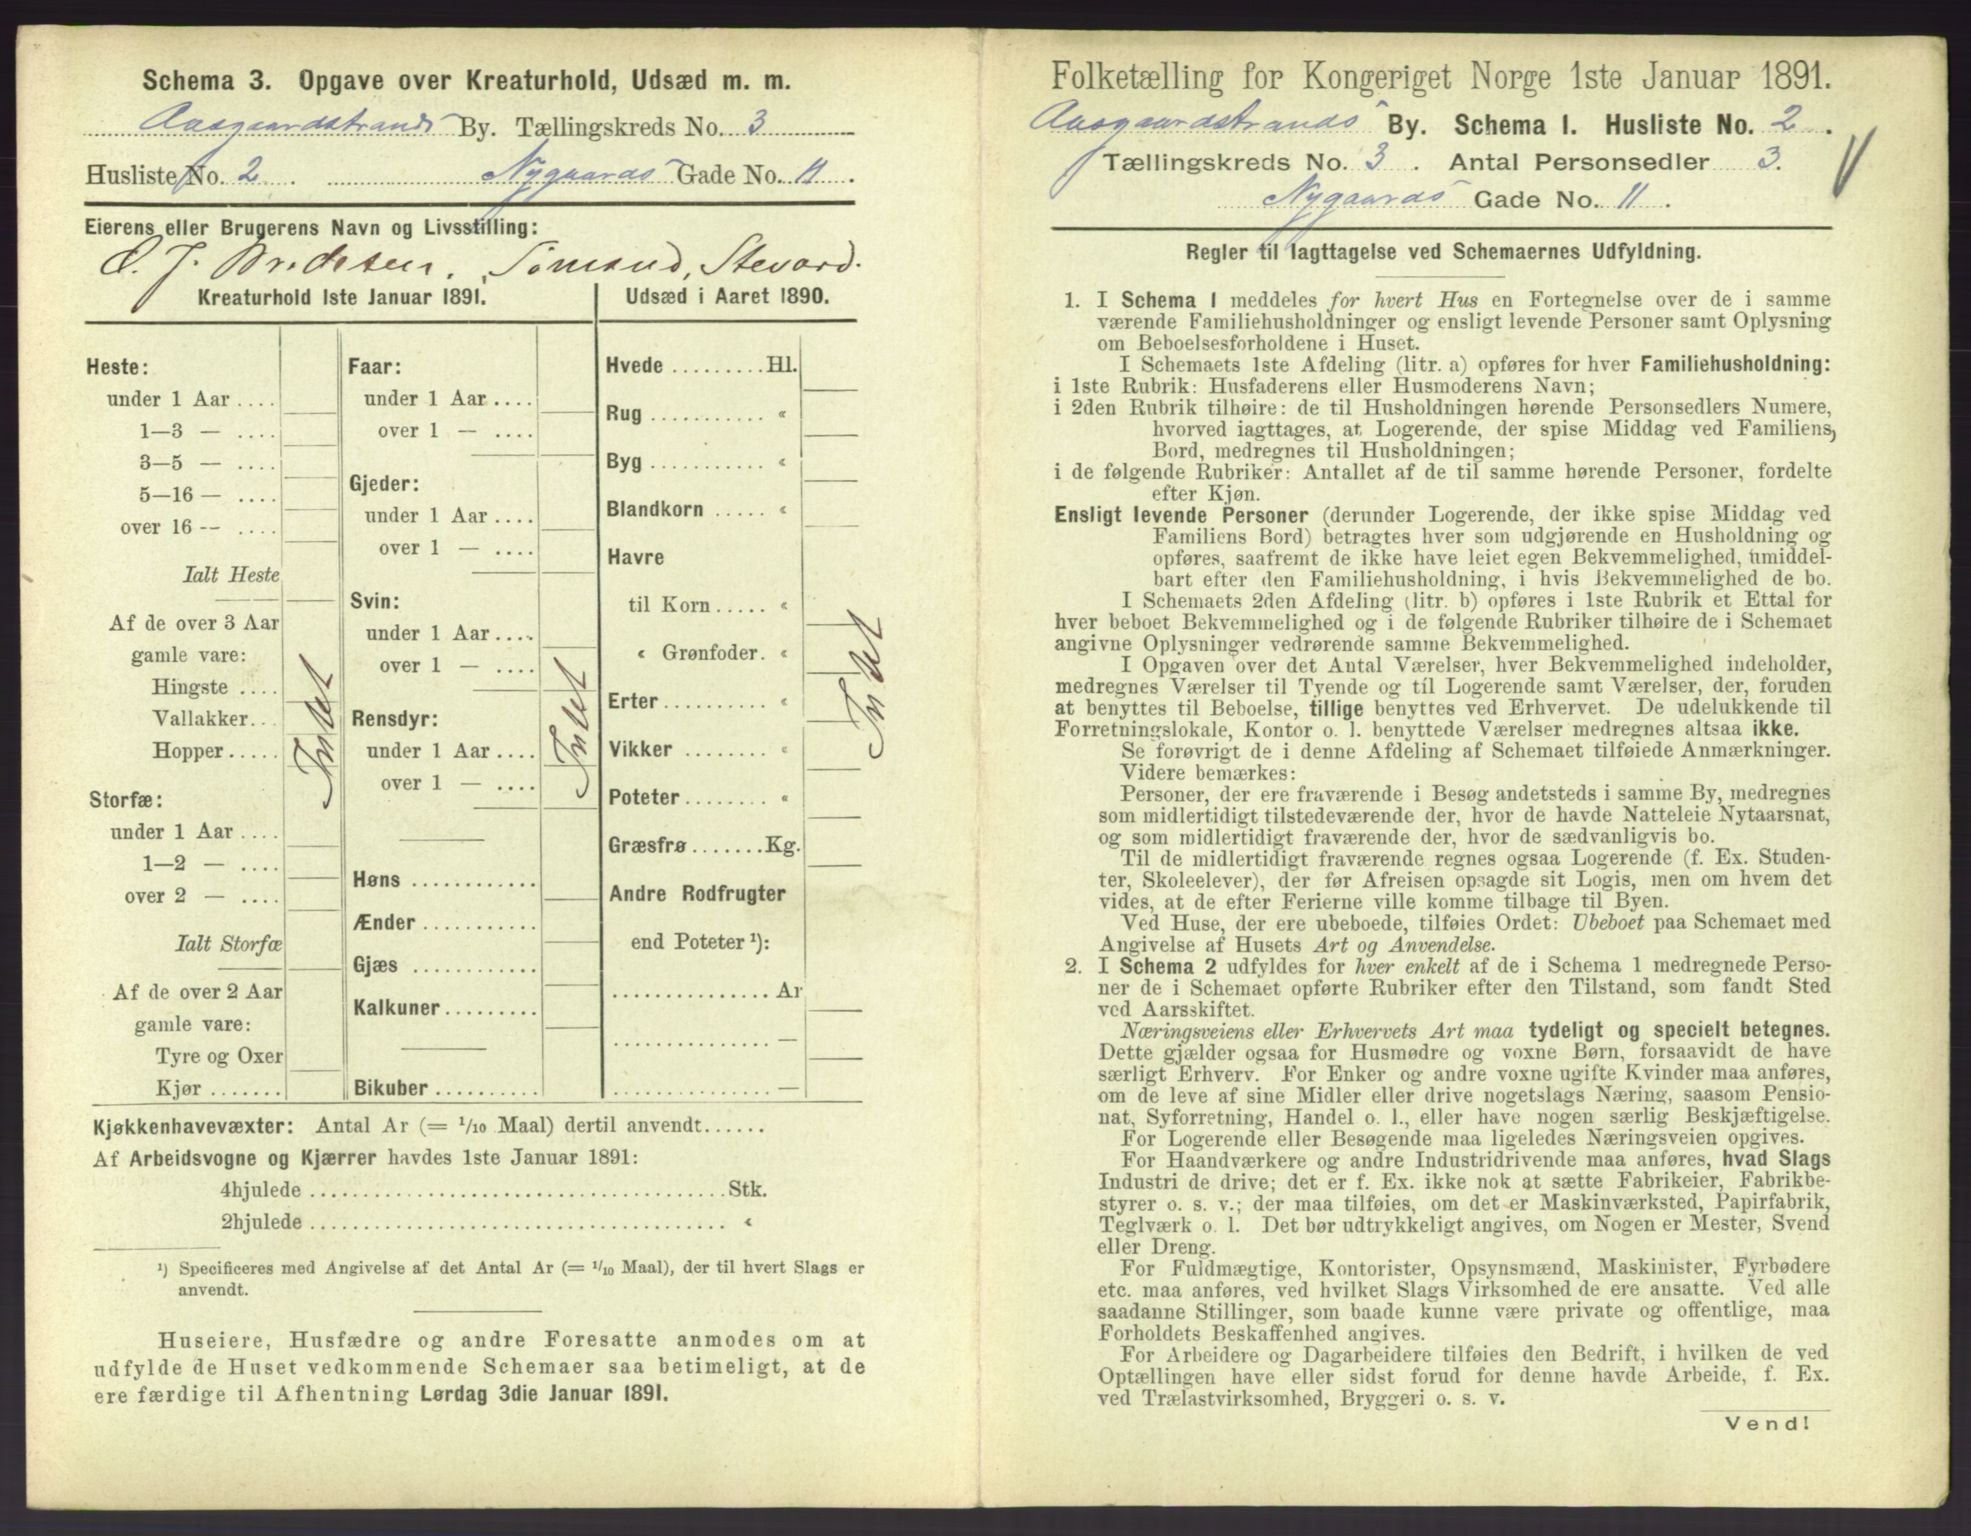 Schema 3. Opgave over Kreaturhold, Udsæd m. m.
Aasgaardstrands By. Tællingskreds No. 3
Husliste No. 2 . Nygaards Gade No. 11 .
Eierens eller Brugerens Navn og Livsstilling:
O. J. Bredesen, Sømand, Stevard.
Kreaturhold 1ste Januar 1891.
Heste:
under 1 Aar ....
1—3 — ....
3—5 — ....
5—16 — ....
over 16 -- ....
Ialt Heste
Af de over 3 Aar
gamle vare:
Hingste ....
Vallakker...
Hopper .....
Storfæ:
under 1 Aar ....
1—2 — ....
over 2 — ....
Ialt Storfæ
Af de over 2 Aar
gamle vare:
Tyre og Oxer
Kjør .......
Intet
Faar:
under 1 Aar ....
over 1 — ....
Gjeder:
under 1 Aar ....
over 1 — ....
Svin:
under 1 Aar ....
over 1 — ....
Rensdyr:
under 1 Aar ....
over 1 — ....
Høns ............
Ænder ...........
Gjæs ............
Kalkuner .........
Bikuber ..........
Intet
Udsæd i Aaret 1890.
Hvede ......... Hl.
Rug ........... «
Byg ........... «
Blandkorn ..... «
Havre
til Korn ..... «
« Grønfoder. «
Erter .......... «
Vikker ........ «
Poteter ........ «
Græsfrø ....... Kg.
Andre Rodfrugter
end Poteter ¹):
............... Ar
............... —
............... —
Intet
Kjøkkenhavevæxter: Antal Ar (= 1/10 Maal) dertil anvendt......
Af Arbeidsvogne og Kjærrer havdes 1ste Januar 1891:
4hjulede ........................................ Stk.
2hjulede ........................................ «
¹) Specificeres med Angivelse af det Antal Ar (= 1/10 Maal), der til hvert Slags er
anvendt.
Huseiere, Husfædre og andre Foresatte anmodes om at
udfylde de Huset vedkommende Schemaer saa betimeligt, at de
ere færdige til Afhentning Lørdag 3die Januar 1891.
Folketælling for Kongeriget Norge 1ste Januar 1891.
Aasgaardstrands By. Schema 1. Husliste No. 2 .
Tællingskreds No. 3 . Antal Personsedler 3.
Nygaards Gade No. 11 .
Regler til Iagttagelse ved Schemaernes Udfyldning.
1. I Schema 1 meddeles for hvert Hus en Fortegnelse over de i samme
værende Familiehusholdninger og ensligt levende Personer samt Oplysning
om Beboelsesforholdene i Huset.
I Schemaets 1ste Afdeling (litr. a) opføres for hver Familiehusholdning:
i 1ste Rubrik: Husfaderens eller Husmoderens Navn;
i 2den Rubrik tilhøire: de til Husholdningen hørende Personsedlers Numere,
hvorved iagttages, at Logerende, der spise Middag ved Familiens
Bord, medregnes til Husholdningen;
i de følgende Rubriker: Antallet af de til samme hørende Personer, fordelte
efter Kjøn.
Ensligt levende Personer (derunder Logerende, der ikke spise Middag ved
Familiens Bord) betragtes hver som udgjørende en Husholdning og
opføres, saafremt de ikke have leiet egen Bekvemmelighed, umiddel-
bart efter den Familiehusholdning, i hvis Bekvemmelighed de bo.
I Schemaets 2den Afdeling (litr. b) opføres i 1ste Rubrik et Ettal for
hver beboet Bekvemmelighed og i de følgende Rubriker tilhøire de i Schemaet
angivne Oplysninger vedrørende samme Bekvemmelighed.
I Opgaven over det Antal Værelser, hver Bekvemmelighed indeholder,
medregnes Værelser til Tyende og til Logerende samt Værelser, der, foruden
at benyttes til Beboelse, tillige benyttes ved Erhvervet. De udelukkende til
Forretningslokale, Kontor o. l. benyttede Værelser medregnes altsaa ikke.
Se forøvrigt de i denne Afdeling af Schemaet tilføiede Anmærkninger.
Videre bemærkes:
Personer, der ere fraværende i Besøg andetsteds i samme By, medregnes
som midlertidigt tilstedeværende der, hvor de havde Natteleie Nytaarsnat,
og som midlertidigt fraværende der, hvor de sædvanligvis bo.
Til de midlertidigt fraværende regnes ogsaa Logerende (f. Ex. Studen-
ter, Skoleelever), der før Afreisen opsagde sit Logis, men om hvem det
vides, at de efter Ferierne ville komme tilbage til Byen.
Ved Huse, der ere ubeboede, tilføies Ordet: Ubeboet paa Schemaet med
Angivelse af Husets Art og Anvendelse.
2. I Schema 2 udfyldes for hver enkelt af de i Schema 1 medregnede Perso-
ner de i Schemaet opførte Rubriker efter den Tilstand, som fandt Sted
ved Aarsskiftet.
Næringsveiens eller Erhvervets Art maa tydeligt og specielt betegnes.
Dette gjælder ogsaa for Husmødre og voxne Børn, forsaavidt de have
særligt Erhverv. For Enker og andre voxne ugifte Kvinder maa anføres,
om de leve af sine Midler eller drive nogetslags Næring, saasom Pensio-
nat, Syforretning, Handel o. l., eller have nogen særlig Beskjæftigelse.
For Logerende eller Besøgende maa ligeledes Næringsveien opgives.
For Haandværkere og andre Industridrivende maa anføres, hvad Slags
Industri de drive; det er f. Ex. ikke nok at sætte Fabrikeier, Fabrikbe-
styrer o. s. v.; der maa tilføies, om det er Maskinværksted, Papirfabrik,
Teglværk o. l. Det bør udtrykkeligt angives, om Nogen er Mester, Svend
eller Dreng.
For Fuldmægtige, Kontorister, Opsynsmænd, Maskinister, Fyrbødere
etc. maa anføres, ved hvilket Slags Virksomhed de ere ansatte. Ved alle
saadanne Stillinger, som baade kunne være private og offentlige, maa
Forholdets Beskaffenhed angives.
For Arbeidere og Dagarbeidere tilføies den Bedrift, i hvilken de ved
Optællingen have eller sidst forud for denne havde Arbeide, f. Ex.
ved Trælastvirksomhed, Bryggeri o. s. v.
Vend!